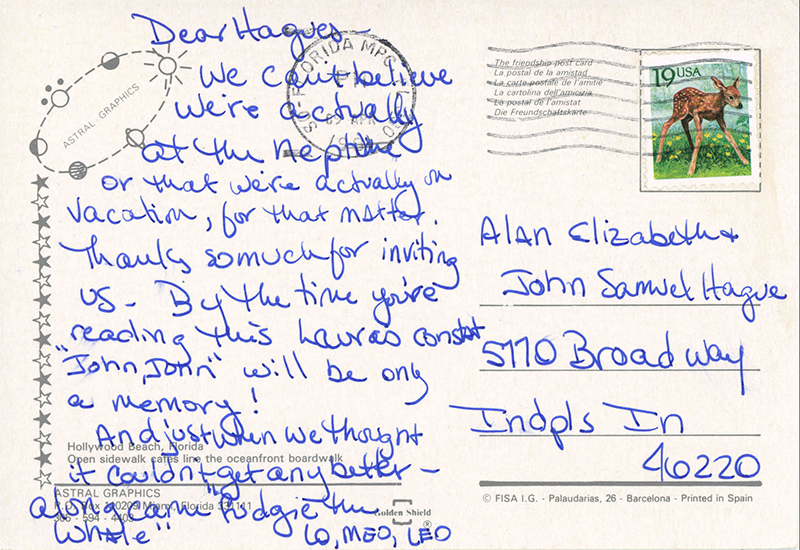 Dear Hagues -
We can't believe
we're actually
at the Neptune
or that we're actually on
vacation, for that matter.
Thanks so much for inviting
us - By the time you're
reading this Laura's constant
"John, John" will be only
a memory!
And just when we thought
it couldn't get any better -
along came "Pudgie the
Whale"
LO, MEO, LEO
ASTRAL GRAPHICS
Hollywood Beach, Florida
Open sidewalk cafes line the oceanfront boardwalk
ASTRAL GRAPHICS
P.O. Box Miami, Florida 33111
305 - 594 - 4403
Golden Shield ®
FLORIDA MPC
APR
The friendship post card
La postal de la amistad
La carte postale de l'amitié
La cartolina dell'amicizia
La postal de l'amistat
Die Freundschaftskarte
19 USA
Alan Elizabeth &
John Samuel Hague
5110 Broadway
Indpls In
46220
© FISA I.G. - Palaudarias, 26 - Barcelona - Printed in Spain